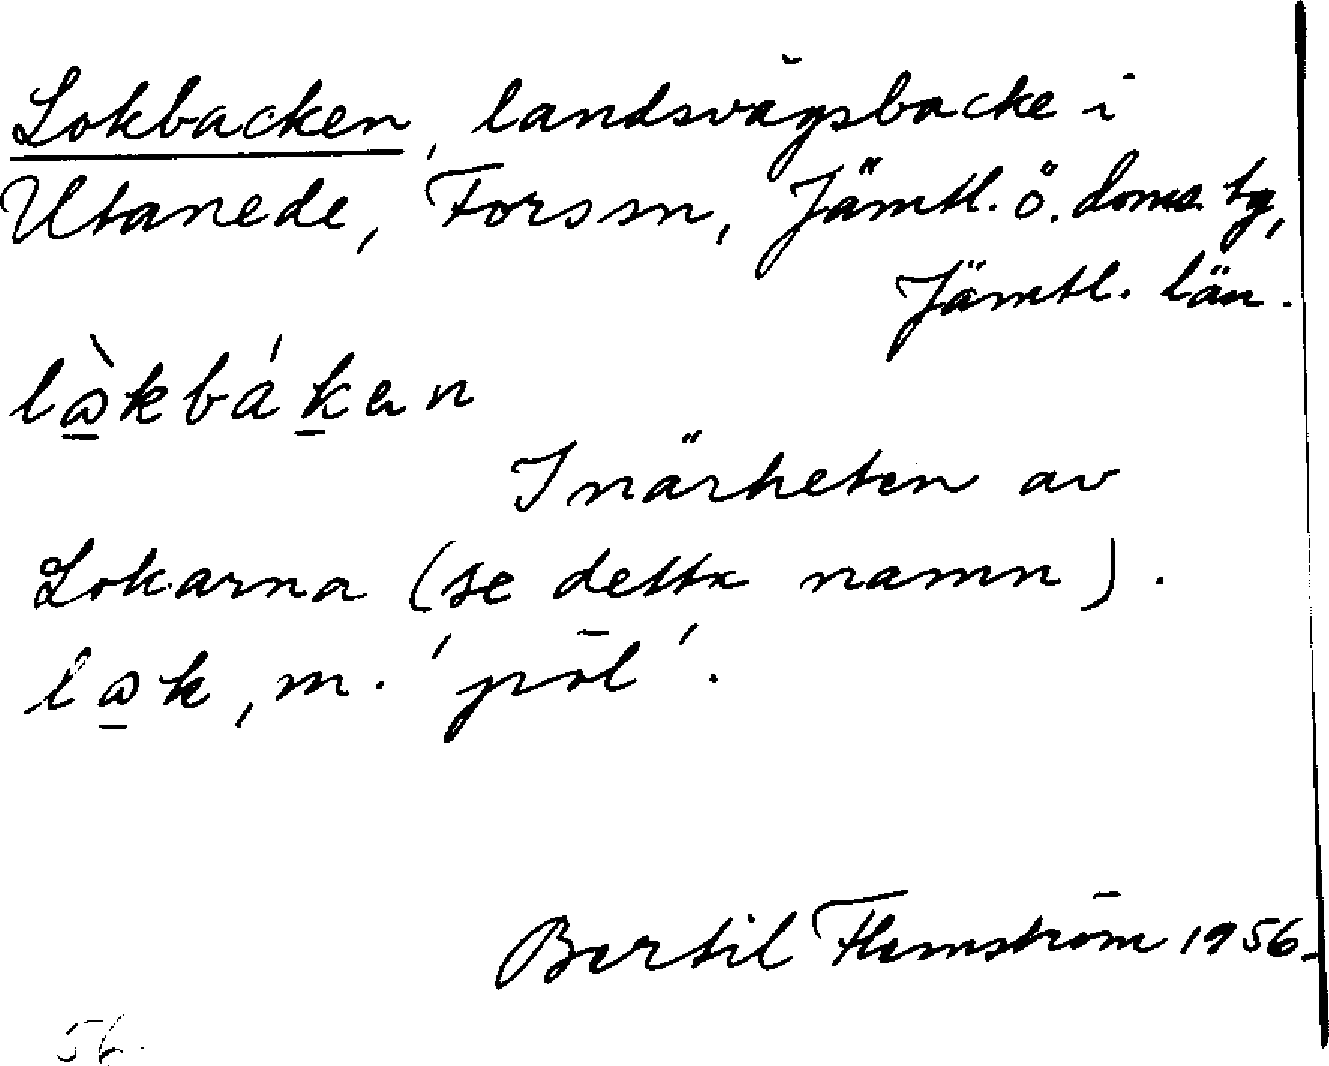 Lokbacken, landsvägsbacke i
Utanede, Forssn, Jämtl. ö. doms. tg,
Jämtl. län.
lὼ̲kbák̲ən
I närheten av
Lokarna (se detta namn).
lω̲k, m. 'pöl'.
Bertil Flemström 1956.
56.